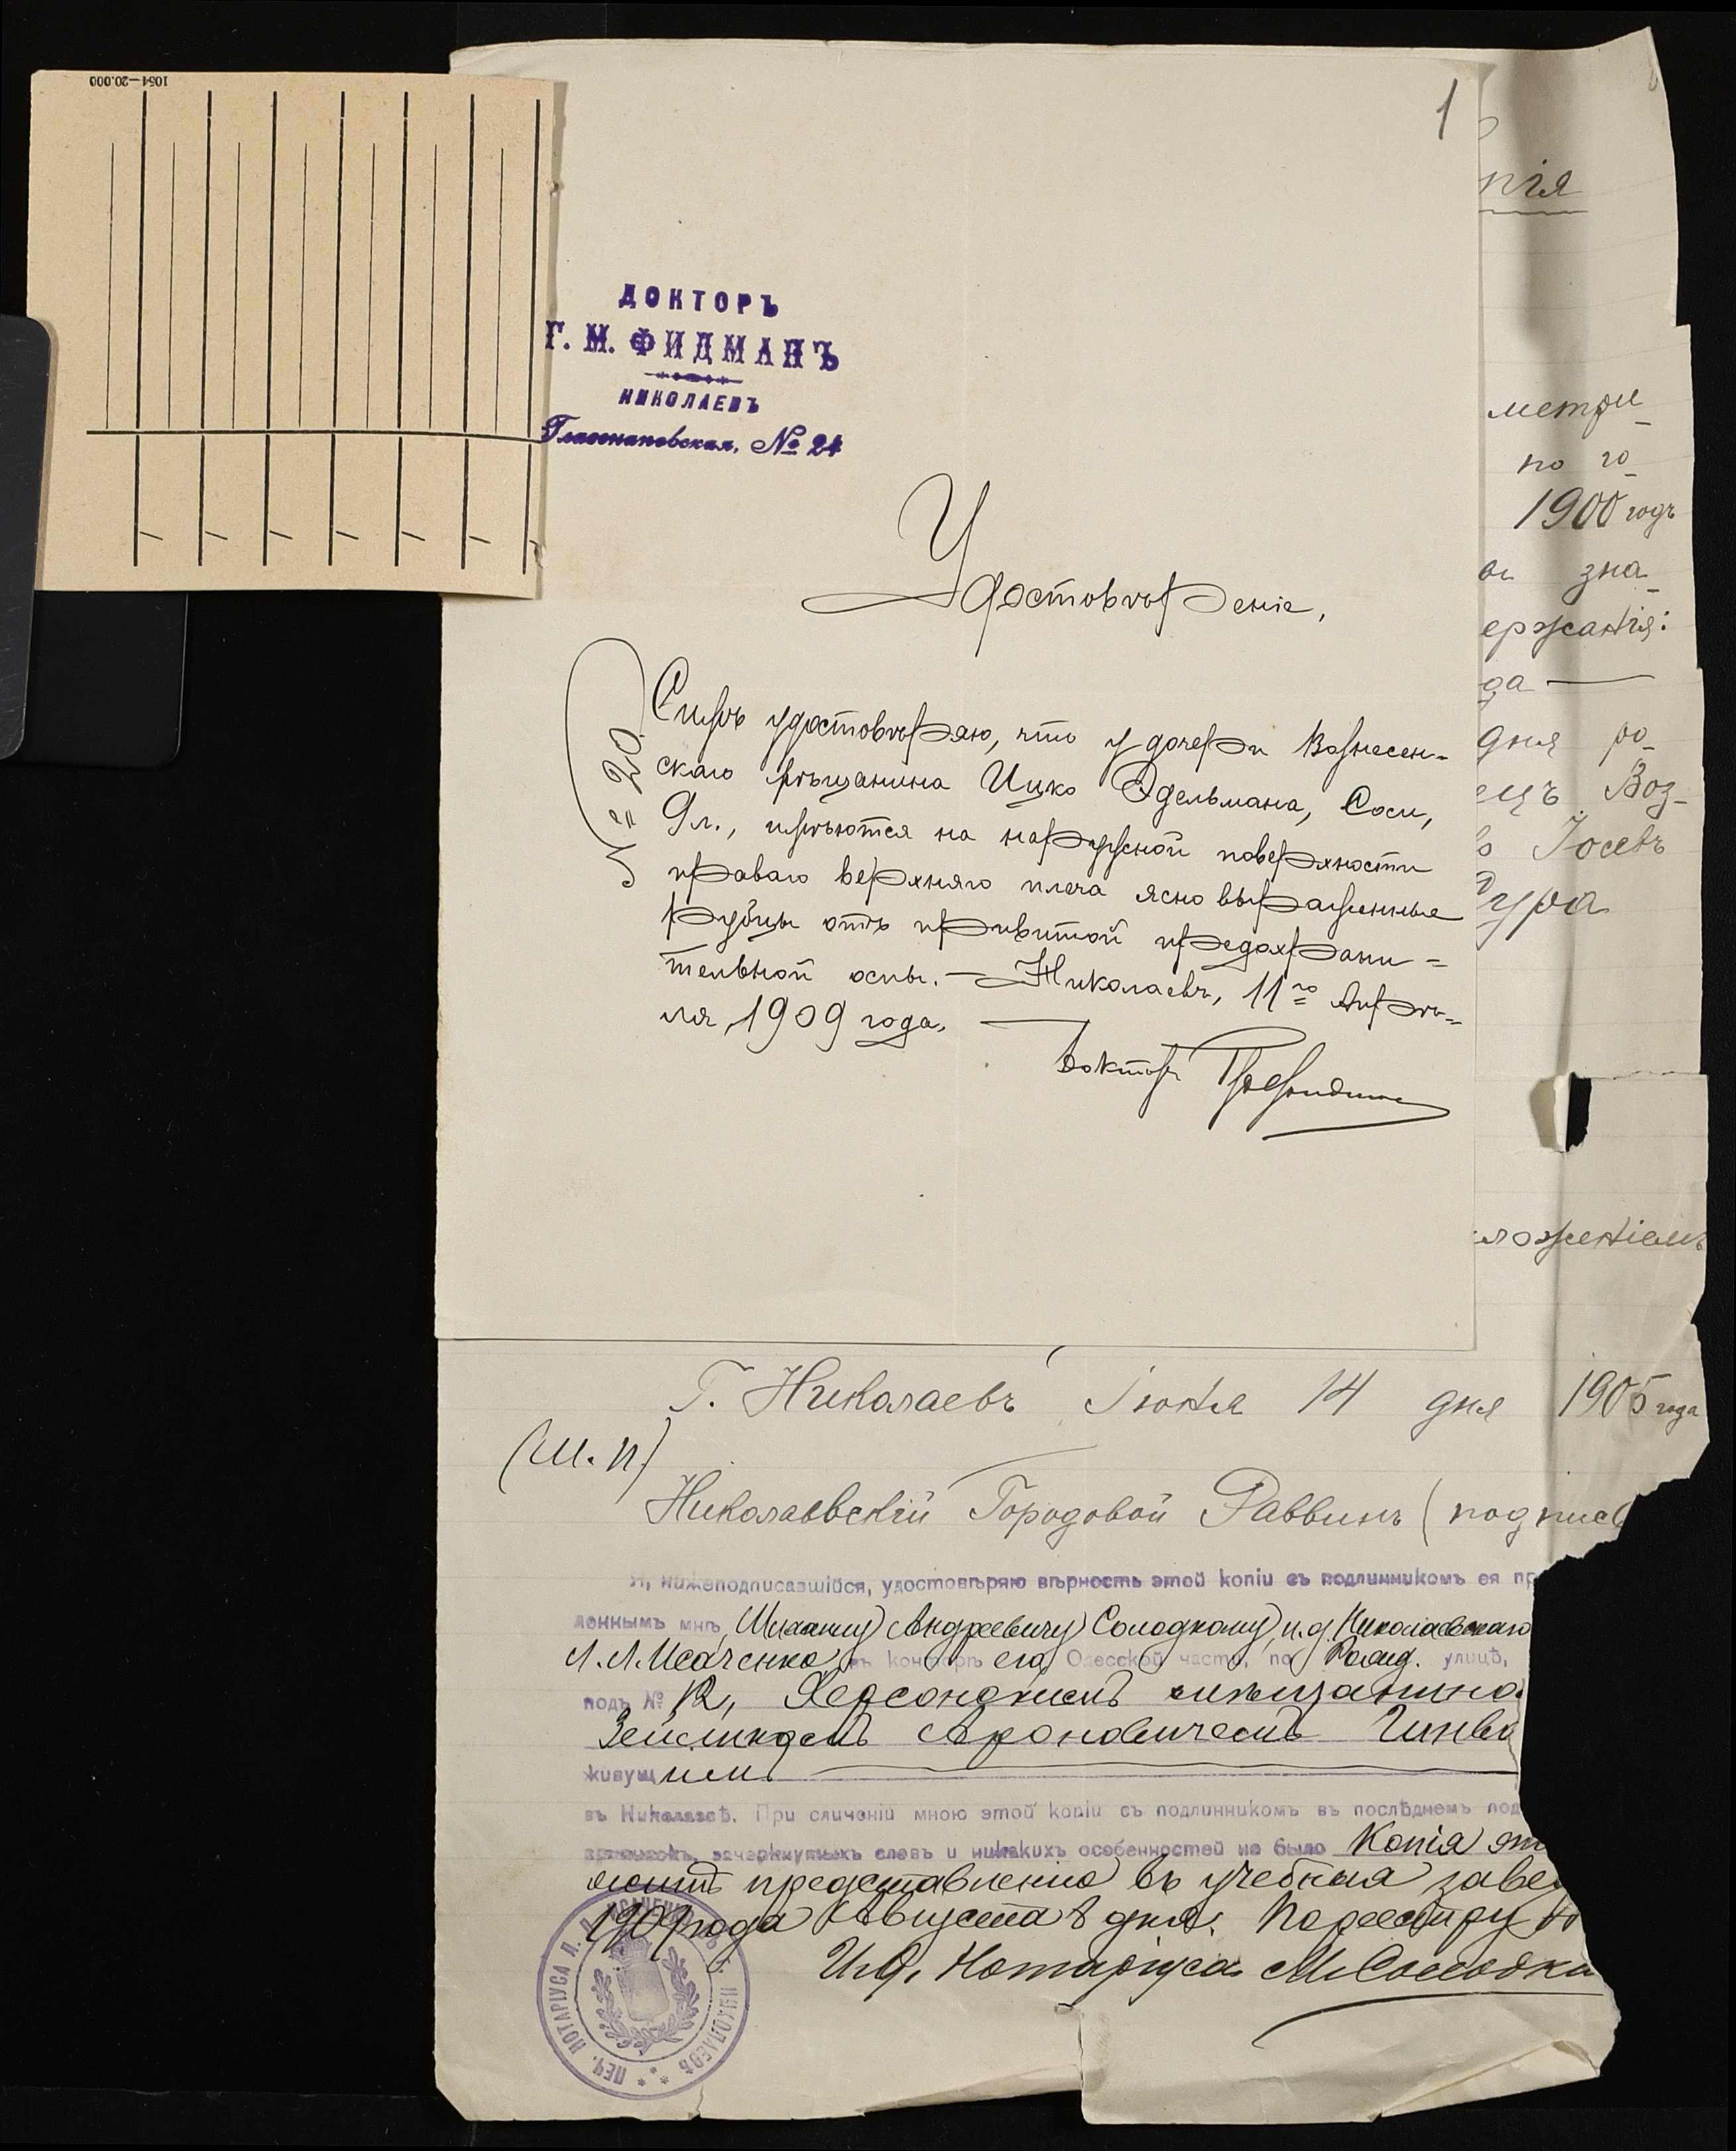 1054—20.000
1
ДОКТОРЪ
Г. М. ФИДМАНЪ
НИКОЛАЕВЪ
№ 24
Удостовѣреніе,
№ 20
Симъ удостовѣряю, что у дочери Вознесен-
скаго мѣщанина Ицко Эдельмана, Соси,
9 л., имѣются на наружной поверхности
праваго верхняго плеча ясно выраженные
рубцы отъ привитой предохрани=
тельной оспы. — Николаевъ, 11го Апрѣ-
ля 1909 года.
Докторъ
пія
метри-
по го-
1900 годъ
зна-
ержанія:
да —
дня ро-
ецъ Воз-
Іосевъ
ура
ложеніемъ
Г. Николаевъ Іюня 14 дня 1905 года
(М. п.)
Николаевскій Городовой Раввинъ (подпис
Я, нижеподписавшійся, удостовѣряю вѣрность этой копіи съ подлинникомъ ея пр
леннымъ мнѣ, Михаилу Андреевичу Солодкому, и. д. Николаевскаго
Л. Л. Исаченко, въ конторѣ его, Одесской части, по улицѣ,
подъ № 12, Херсонскимъ мѣщанино
Ароновичемъ
живущимъ
въ Николаевѣ. При сличеніи мною этой копіи съ подлинникомъ въ послѣднемъ под
приписокъ, зачеркнутыхъ словъ и никакихъ особенностей не было Копія эт
житъ представленію въ учебныя заве
1909 года Августа 8 дня. По реестру №
И. д. Нотаріуса М. Солодк
ПЕЧ. НОТАРІУСА Л. Л. ИСАЧЕНКО ВЪ Г. НИКОЛАЕВѢ